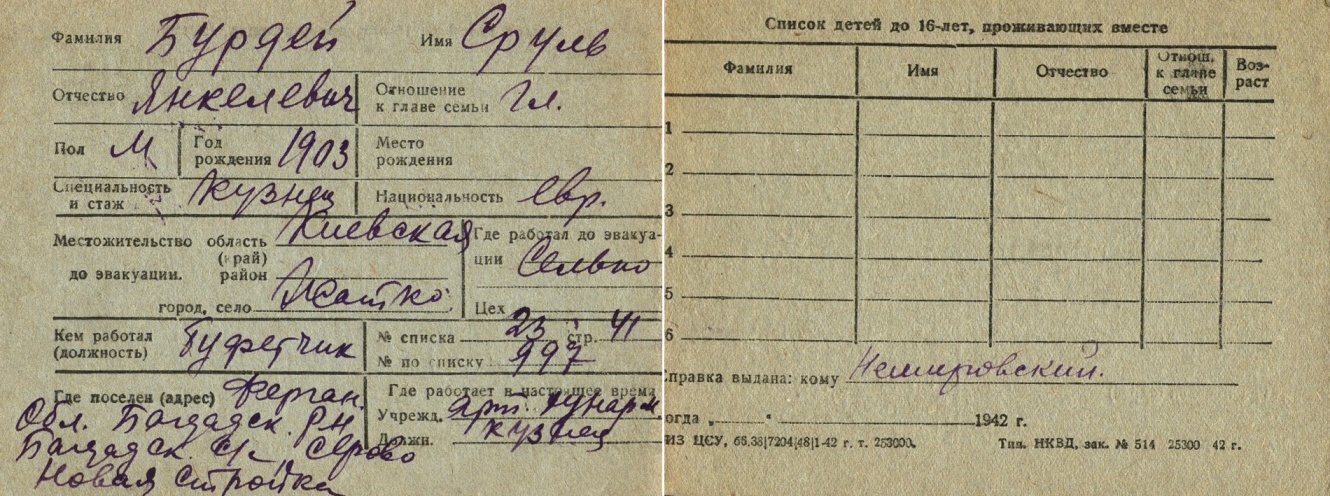 Фамилия Бурдей Имя Сруль
Отчество Янкелевич Отношение к главе семьи Гл.
Пол М Год рождения 1903 Место рождения
Специальность и стаж кузнец Национальность Евр.
Местожительство до эвакуации. область (край) Киевская Где работал до эвакуации Сельпо
район
город, село Цех
Кем работал (должность) Буфетчик № списка 23 стр. 41
№ по списку 997
Где поселен (адрес) Ферган. Где работает в настоящее время
Обл. Багдадск. Р-Н Учрежд. арт.
Багдадск. с/с, Серово Должн. кузнец
Новая стройка
Список детей до 16-лет, проживающих вместе
Фамилия Имя Отчество Отнош. к главе семьи Возраст
1
2
3
4
5
6
Справка выдана: кому Немировский.
огда „ “ 1942 г.
ИЗ ЦСУ, 66,38|7204|48|1-42 г. т. 253000. Тип. НКВД, зак. № 514 25300 42 г.